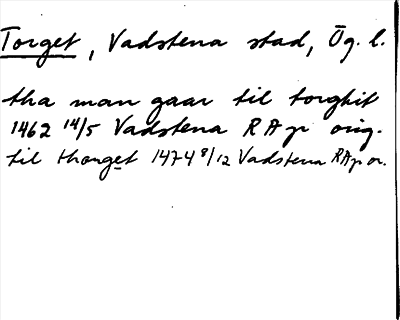 Torget, Vadstena stad, Ög. l.
tha man gaar til torghit
1462 14/5 Vadstena RAp orig.
til thorget 1474 8/12 Vadstena RAp or.